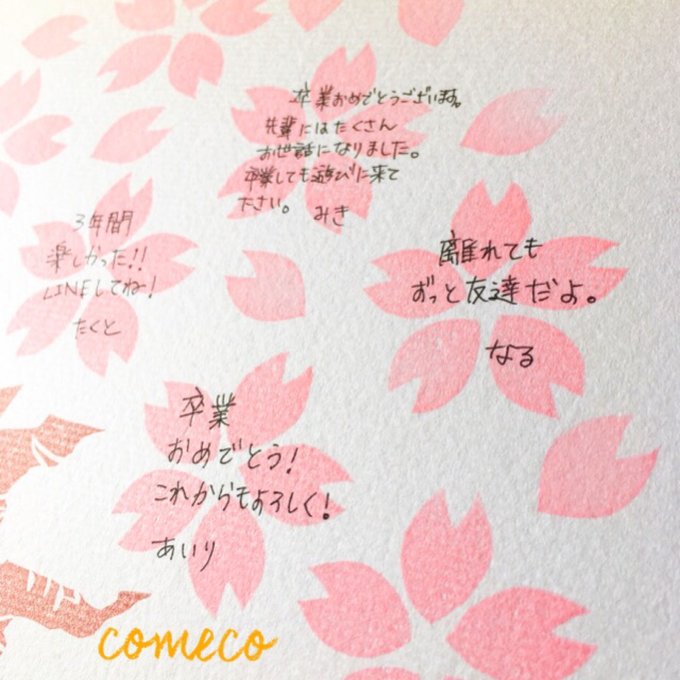 卒業おめでとうございます。
先輩にはたくさん
お世話になりました。
卒業しても遊びに来て
ださい。 みき
3年間
楽しかった!!
LINEしてね!
たくと
離れても
ずっと友達だよ。
なる
卒業
おめでとう!
これからもよろしく!
あいり
comeco